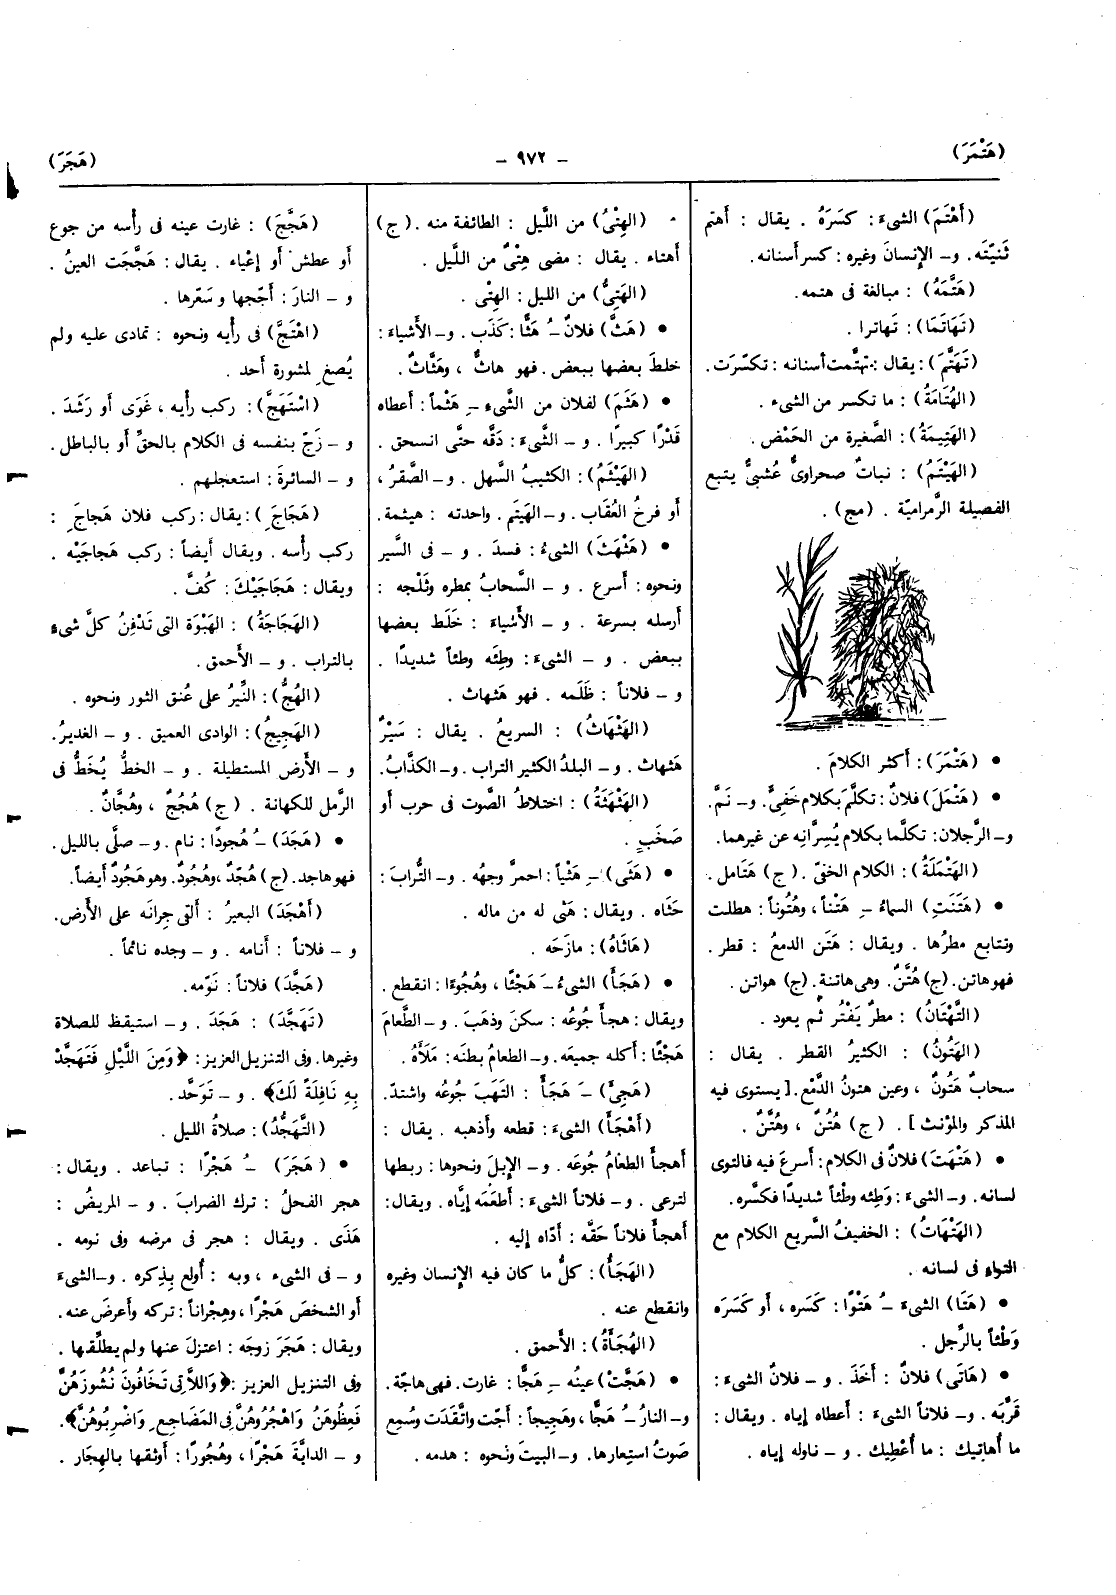 (هَتْمَرَ)
– ٩٧٢ –
(هَجَرَ)
(أَهْتَمَ) الشىءَ: كسَرَهُ . يقال : أَهتم
ثَنِيّتَه. و– الإِنسانَ وغيره: كسر أسنانه.
(هَتَّمَهُ) : مبالغة فى هتمه.
(تَهَاتَمَا) : تَهاترا .
(تَهَتَّمَ): يقال : تهتَّمت أسنانه : تكسّرَت.
(الهُتَامَةُ) : ما تكسر من الشىء .
(الهَتِيمَةُ): الصَّغيرة من الحَمْض.
(الهَيْتَمُ) : نباتٌ صحراوىٌّ عُشبىٌّ يتبع
الفصيلة الرَّمراميّة . (مج) .
• (هَتْمَرَ): أكثر الكلامَ .
• (هَتْمَلَ) فلانٌ: تكلَّمَ بكلام خَفِىٍّ. و– نَمَّ.
و– الرَّجلان: تكلَّما بكلام يُسِرَّانِه عن غيرهما.
(الهَتْملَةُ): الكلام الخفىّ . (ج) هَتَامل.
• (هَتَنَتِ) السماءُ –ِ هَتْناً ، وهُتُوناً: هطلت
وتتابع مطرُها . ويقال : هَتَن الدمعُ : قطر.
فهو هاتن. (ج) هُتَّنٌ. وهى هاتنة. (ج) هواتن .
(التَّهْتَانُ) : مطرٌ يَفْتُر ثم يعود .
(الهَتُونُ) : الكثيرُ القطر . يقال :
سحابٌ هَتُونٌ ، وعين هتونُ الدَّمْع.[ يستوى فيه
المذكر والمؤنث ] . (ج) هُتُنٌ ، وهُتَّنٌ .
• (هَتْهَتَ) فلانٌ فى الكلام: أَسرعَ فيه فالتوى
لسانه. و– الشىءَ : وَطِئه وطْئاً شديدًا فكسَّره.
(الهَتْهَاتُ) : الخفيفُ السَّريع الكلام مع
التواء فى لسانه .
• (هَتَا) الشىءَ –ُ هَتْوًا: كَسَره ، أو كَسَرَه
وَطْئاً بالرِّجل .
• (هَاتَى) فلانٌ : أَخَذَ . و – فلانٌ الشىءَ :
قَرَّبَه . و– فلاناً الشىءَ : أعطاه إياه . ويقال:
ما أُهاتِيك : ما أُعْطِيك . و – ناوله إياه .
(الهِتْىُ) من اللَّيل : الطائفة منه . (ج)
أهتاء . يقال : مضى هِتْىٌ من اللَّيل .
(الهَتِىُّ) من الليل : الهِتْى .
• (هَثَّ) فلانٌ –ُ هَثًّا : كَذَب . و– الأَشياءَ :
خلطَ بعضها ببعض . فهو هاثٌّ ، وهَثَّاثٌ.
• (هَثَمَ) لفلان من الشَّىءِ –ِ هَثْماً: أعطاه
قَدْرًا كبيرًا . و – الشَّىءَ: دَقَّه حتَّى انسحق .
(الهَيْثَمُ): الكثيبُ السَّهل . و– الصَّقرُ ،
أو فرخُ العُقَاب . و– الهَيتَم. واحدته : هيثمة.
• (هَثْهَثَ) الشىءُ : فسدَ . و – فى السَّير
ونحوه : أسرع . و – السَّحابُ بمطره وثَلْجه :
أرسله بسرعة . و – الأَشياءَ : خَلَط بعضها
ببعض . و – الشىءَ: وطِئَه وطئاً شديدًا .
و – فلاناً : ظَلَمه . فهو هَثهاث .
(الهَثْهَاثُ) : السريعُ . يقال : سَيْرٌ
هَثهاث . و– البلدُ الكثير التراب. و– الكذَّابُ.
(الهَثْهَثَةُ) : اختلاطُ الصَّوت فى حرب أو
صَخَبٍ .
• (هَثَى) –ِ هَثْياً: احمرّ وجهُه . و– التُّرابَ:
حَثَاه . ويقال: هَثى له من ماله .
(هَاثَاهُ) : مازَحَه .
• (هَجَأَ) الشىءُ –َ هَجْئًا ، وهُجُوءًا: انقطع .
ويقال : هجأ جُوعُه : سكنَ وذهَبَ . و– الطَّعامَ
هَجْئًا: أكله جميعَه. و– الطعام بطنَه: مَلَأَهُ .
(هَجِئَ) –َ هَجَأً : التَهَبَ جُوعُه واشتدّ.
(أَهْجَأَ) الشىءَ : قطعه وأذهبه . يقال :
أهجأ الطعامُ جُوعَه . و– الإِبلَ ونحوها: ربطها
لترعى . و– فلاناً الشىءَ : أطعَمَه إيَّاه . ويقال:
أهجأ فلاناً حَقَّه : أدّاه إليه .
(الهَجَأُ) : كلُّ ما كان فيه الإِنسان وغيره
وانقطع عنه .
(الهُجَأَةُ) : الأَحمق .
• (هَجَّتْ) عينُه –ِ هَجًّا: غارت. فهى هاجّة.
و– النارُ –ُ هَجًّا، وهَجِيجاً: أجّت واتَّقَدَت وسُمِع
صَوتُ استِعارها. و– البيتَ ونَحوه : هدمه .
(هَجَّجَ) : غارت عينه فى رأسه من جوع
أو عطش أو إعْياء . يقال : هَجَّجَت العينُ .
و – النارَ : أجّجها وسَعَّرها .
(اهْتَجَّ) فى رأيه ونحوه : تمادى عليه ولم
يُصغِ لمشورة أحد .
(اسْتَهَجَّ): ركب رأيه ، غَوَى أو رَشَدَ .
و – زَجّ بنفسه فى الكلام بالحقّ أو بالباطل .
و – السائرةَ : استعجلهم .
(هَجَاجَِ ): يقال : ركب فلان هَجاجَِ :
ركب رأسه . ويقال أيضاً : ركب هَجاجَيْه .
ويقال: هَجَاجَيْكَ: كُفَّ .
(الهَجَاجَةُ) : الهَبْوَة التى تَدْفِنُ كلَّ شىء
بالتراب . و – الأَحمق .
(الهُجُّ): النِّيرُ على عُنق الثور ونحوه .
(الهَجِيجُ): الوادى العميق . و – الغديرُ.
و – الأَرض المستطيلة . و – الخطُّ يُخَطُّ فى
الرَّمل للكهانة . (ج) هُجُجٌ ، وهُجَّانٌ.
• (هَجَدَ) –ُ هُجودًا: نام . و– صلَّى بالليل.
فهو هاجد.(ج) هُجَّدٌ، وهُجُودٌ. وهو هَجُودٌ أيضاً.
(أَهْجَدَ) البعيرُ : ألقى جِرانَه على الأَرض.
و – فلاناً : أنامه . و – وجده نائماً .
(هَجَّدَ) فلاناً: نَوّمه.
(تَهَجَّدَ) : هَجَدَ . و – استيقظ للصلاة
وغيرها. وفى التنزيل العزيز: ﴿وَمِنَ اللَّيْلِ فَتَهَجَّدْ
بِهِ نَافِلَةً لَكَ﴾ . و – تَوَحَّد.
(التَّهَجُّدُ) : صلاةُ الليل .
• (هَجَرَ) –ُ هَجْرًا : تباعد . ويقال :
هجر الفحلُ : ترك الضراب . و – المريضُ :
هَذَى . ويقال : هجر فى مرضه وفى نومه .
و – فى الشىء ، وبه : أُولع بِذِكره . و– الشىءَ
أو الشخصَ هَجْرًا، وهِجْراناً: تركه وأعرضَ عنه.
ويقال: هَجَرَ زوجَه : اعتزلَ عنها ولم يطلِّقها .
وفى التنزيل العزيز :﴿وَاللاَّتِى تَخَافُونَ نُشُوزَهُنَّ
فَعِظُوهُنَّ وَاهْجُرُوهُنَّ فِى المَضَاجِعِ وَاضْرِبُوهُنَّ﴾.
و – الدابّةَ هَجْرًا ، وهُجُورًا: أوثقها بالهِجَار .